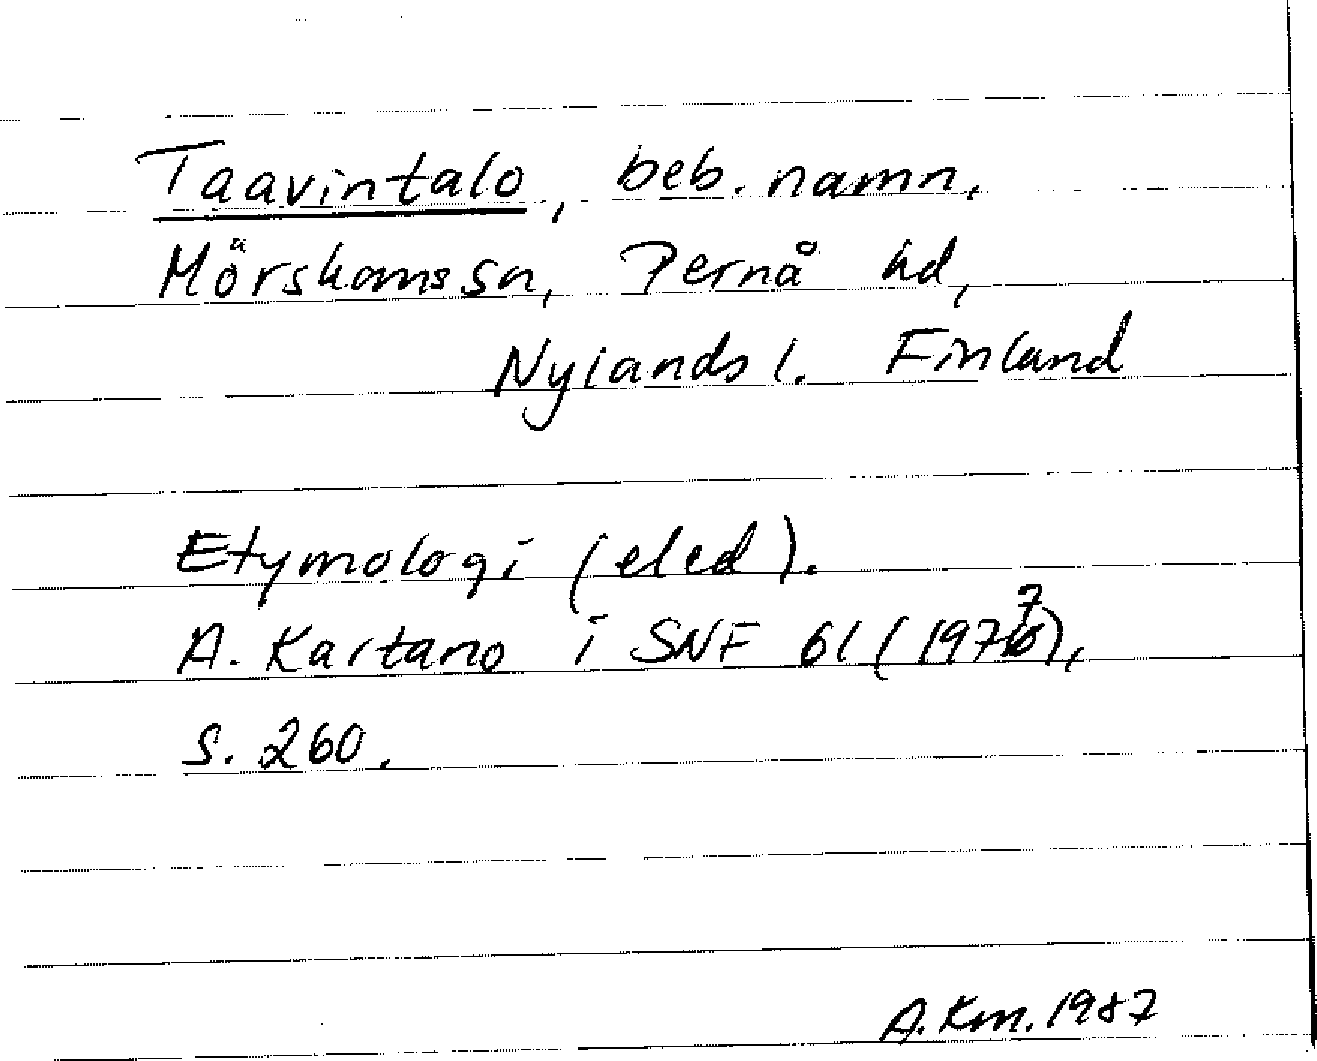 Taavintalo, beb. namn,
Mörskoms sn, Pernå hd,
Nylands l. Finland
Etymologi (eled).
A. Kartano i SNF 61 (1977),
S. 260.
A. Km. 1987